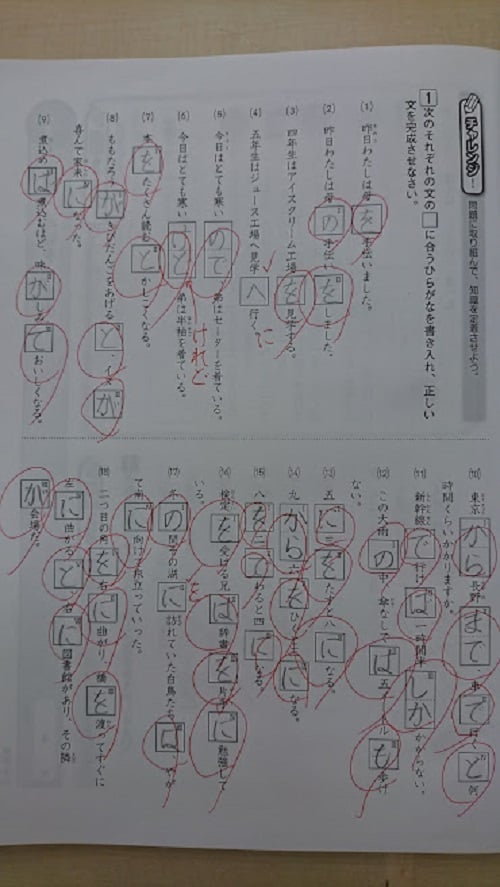 チャレンジ!
問題に取り組んで、知識を定着させよう。
1 次のそれぞれの文の□に合うひらがなを書き入れ、正しい
文を完成させなさい。
(1) 昨日わたしは母を手伝いました。
(2) 昨日わたしは母の手伝いをしました。
(3) 四年生はアイスクリーム工場を見学する。
(4) 五年生はジュース工場へ見学へ行く。
に
(5) 今日はとても寒いので弟はセーターを着ている。
(6) 今日はとても寒い 弟は半袖を着ている。
けれど
(7) 本をたくさん読むと かしこくなる。
(8) ももたろうがきびだんごをあげると、イヌが
喜んで家来になった。
(9) 煮込めば煮込むほど、味がしみておいしくなる。
(10) 東京から長野まで車で行くと何
時間くらいかかりますか。
(11) 新幹線で行けば一時間半しかかからない。
(12) この大雨の中、傘なしでは五メートルも歩け
ない。
(13) 五に三をたすと八になる。
(14) 九から六をひくと三になる。
(15) 八を二でわると四になる。
(16) 検定を受ける兄は辞書を片手に勉強して
いる。
(17) 冬の間 の湖に訪れていた白鳥たちは、やが
を
て北に向けて飛立っていった。
(18) 二つ目の角を右に曲がり、橋を渡ってすぐに
左に曲がると右に図書館があり、その隣
が会場だ。